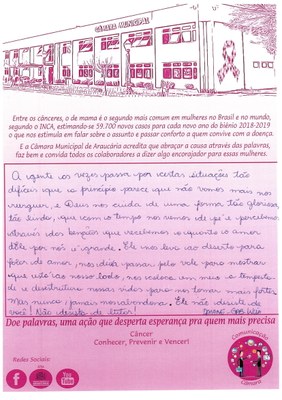 CÂMARA MUNICIPAL
Entre os cânceres, o de mama é o segundo mais comum em mulheres no Brasil e no mundo,
segundo o INCA, estimando-se 59.700 novos casos para cada novo ano do biênio 2018-2019
o que nos estimula em falar sobre o assunto e passar conforto a quem convive com a doença.
E a Câmara Municipal de Araucária acredita que abraçar a causa através das palavras,
faz bem e convida todos os colaboradores a dizer algo encorajador para essas mulheres.
A gente as vezes passa por certas situação tão
difícil que a princípio parece que não vamos mais nos
reerguer, e Deus nos cuida de uma forma tão gloriosa
tão linda, que com o tempo nos vamos de pé e percebemos
através das benção que recebemos o quanto o amor
dEle por nós é grande. Ele nos leva ao deserto para
falar de amor, nos deixa passar pelo vale para mostrar
que está ao nosso lado, nos coloca em meio a tempesta-
de e desestrutura nossas vidas para nos tornar mais fortes
Mas nunca, jamais nos abandona. Ele não desiste de
você! Não desista de lutar!
Doe palavras, uma ação que desperta esperança pra quem mais precisa
Câncer
Conhecer, Prevenir e Vencer!
Redes Sociais:
f
You
Tube
Comunicação
câmara